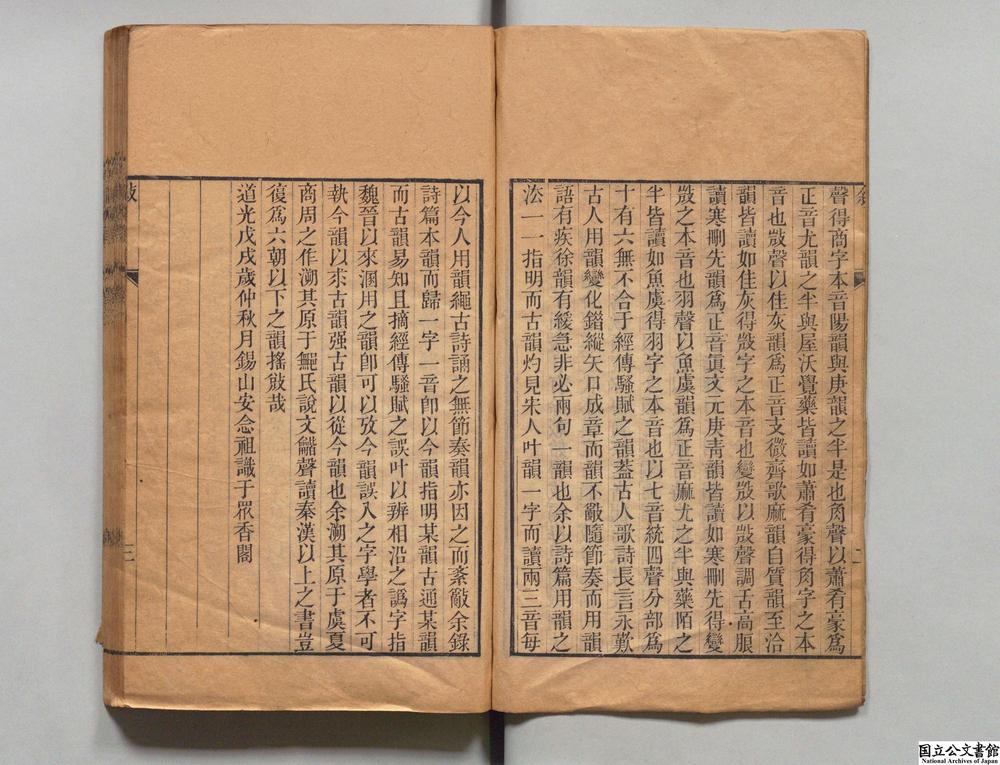 聲得商字本音陽韻與庚韻之半是也角聲以蕭肴豪為
正音尤韻之半與屋沃覺藥皆讀如蕭肴豪得角字之本
音也徵聲以佳灰韻為正音支微齊歌麻韻自質韻至洽
韻皆讀如佳灰得徵字之本音也變徵以徵聲調舌高脹
讀寒刪先韻為正音眞文元庚靑韻皆讀如寒刪先得變
徵之本音也羽聲以魚虞韻為正音麻尤之半與藥陌之
半皆讀如魚虞得羽字之本音也以七音統四聲分部為
十有六無不合于經傳騷賦之韻葢古人歌詩長言永歎
古人用韻變化錯縱矢口成章而韻不敵隨節奏而用韻
語有疾徐韻有緩急非必兩句一韻也余以詩篇用韻之
法一一指明而古韻灼見朱人叶韻一字而讀兩三音每
以今人用韻繩古詩誦之無節奏韻亦因之而紊敵余錄
詩篇本韻而歸一字一音卽以今韻指明某韻古通某韻
而古韻易知且摘經傳騷賦之誤叶以辨相沿之譌字指
魏晉以來溷用之韻卽可以攷今韻誤入之字學者不可
執今韻以求古韻强古韻以從今韻也余溯其原于虞夏
商周之作溯其原于鄦氏說文龤聲讀秦漢以上之書豈
復為六朝以下之韻搖敓哉
道光戊戌歲仲秋月錫山安念祖識于罛香閣
敍
二
三
国立公文書館
National Archives of Japan